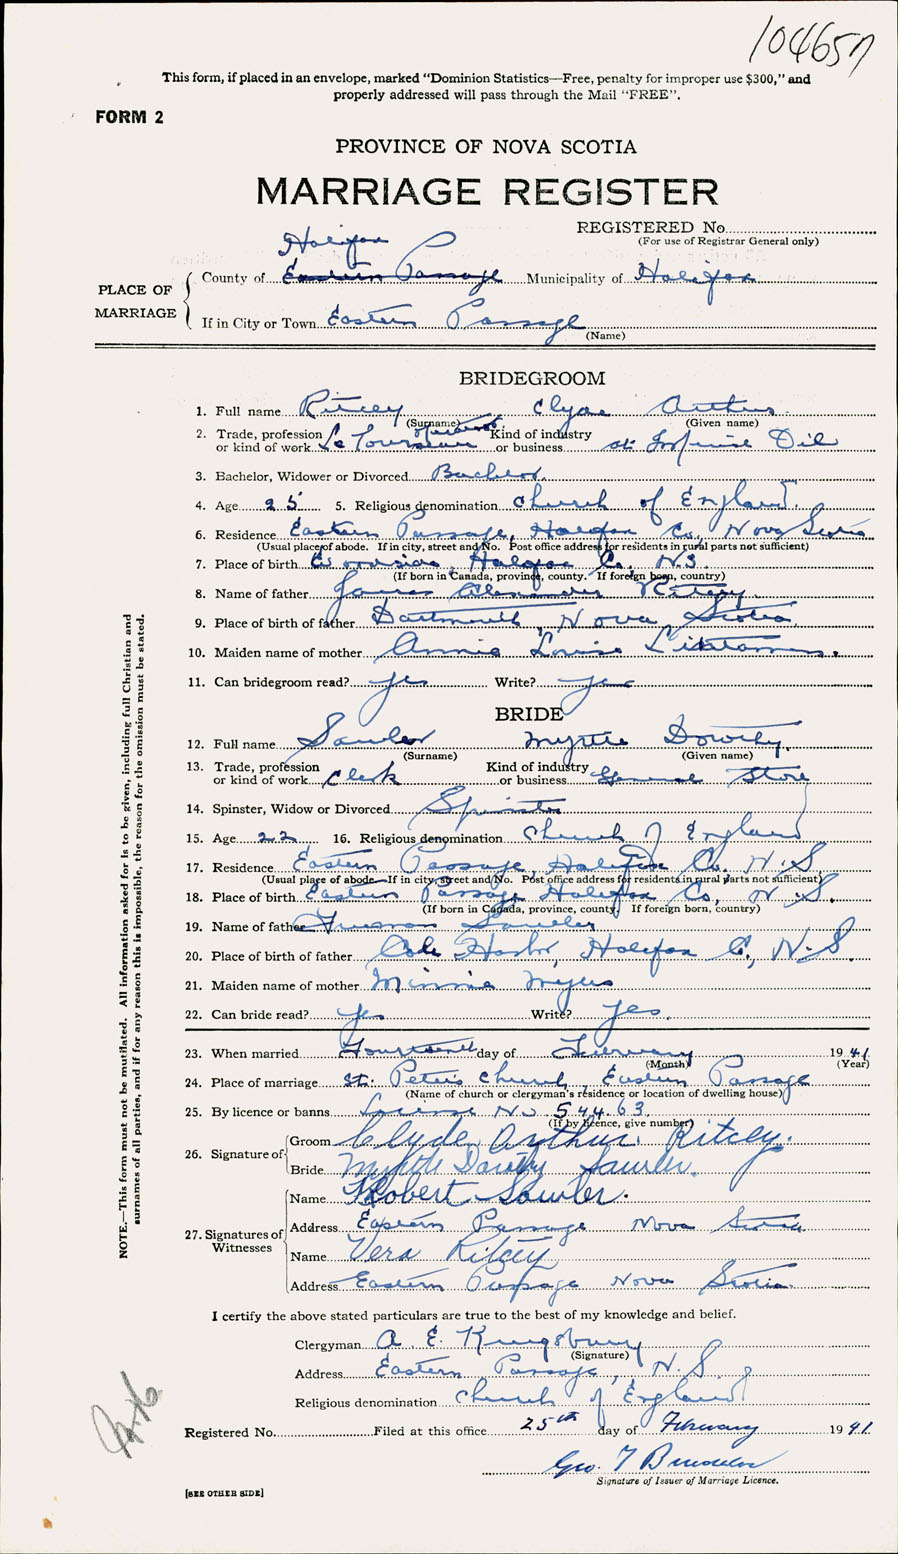 104657
This form, if placed in an envelope, marked "Dominion Statistics—Free, penalty for improper use $300," and
properly addressed will pass through the Mail "FREE".
FORM 2
PROVINCE OF NOVA SCOTIA
MARRIAGE REGISTER
REGISTERED No.
(For use of Registrar General only)
Halifax
PLACE OF MARRIAGE
County of Eastern Passage Municipality of Halifax
If in City or Town Eastern Passage
(Name)
BRIDEGROOM
1. Full name Ritcey Clyde Arthur
(Surname) (Given name)
2. Trade, profession or kind of work Kind of industry or business at Imperial Oil
3. Bachelor, Widower or Divorced Bachelor
4. Age 25 5. Religious denomination Church of England
6. Residence Eastern Passage, Halifax Co, Nova Scotia
(Usual place of abode. If in city, street and No. Post office address for residents in rural parts not sufficient)
7. Place of birth Halifax Co. N.S.
(If born in Canada, province, county. If foreign born, country)
8. Name of father James Alexander Ritcey.
9. Place of birth of father Dartmouth, Nova Scotia
10. Maiden name of mother Annie Louise
11. Can bridegroom read? yes Write? yes
BRIDE
12. Full name Sawler Myrtle Dorothy.
(Surname) (Given name)
13. Trade, profession or kind of work Clerk Kind of industry or business General Store
14. Spinster, Widow or Divorced Spinster
15. Age 22 16. Religious denomination Church of England
17. Residence Eastern Passage, Halifax Co. N.S
(Usual place of abode. If in city, street and No. Post office address for residents in rural parts not sufficient)
18. Place of birth Eastern Passage Halifax Co, N.S.
(If born in Canada, province, county. If foreign born, country)
19. Name of father Freeman Sawler
20. Place of birth of father Cole Harbor, Halifax Co., N.S.
21. Maiden name of mother Minnie Myers
22. Can bride read? yes Write? yes.
23. When married Fourteenth day of February 1941
(Month) (Year)
24. Place of marriage St. Peter's Church, Eastern Passage
(Name of church or clergyman's residence or location of dwelling house)
25. By licence or banns License No 544.63.
(If by licence, give number)
26. Signature of
Groom Clyde Arthur Ritcey.
Bride Myrtle Dorothy Sawler.
27. Signatures of Witnesses
Name Robert Sawler.
Address Eastern Passage Nova Scotia
Name Vera Ritcey
Address Eastern Passage Nova Scotia.
I certify the above stated particulars are true to the best of my knowledge and belief.
Clergyman A. E. Kingsbury
(Signature)
Address Eastern Passage, N.S.
Religious denomination Church of England
Registered No. Filed at this office 25th day of February 1941
Geo. T
Signature of Issuer of Marriage Licence.
[SEE OTHER SIDE]
NOTE.—This form must not be mutilated. All information asked for is to be given, including full Christian and
surnames of all parties, and if for any reason this is impossible, the reason for the omission must be stated.